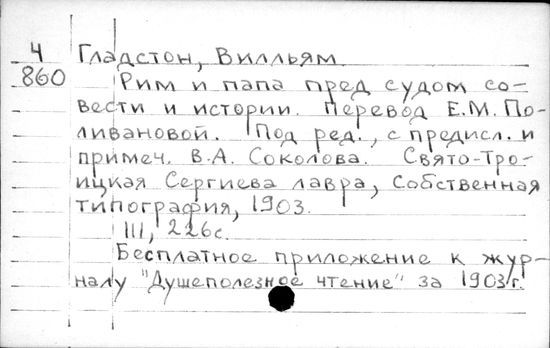 4 Гладстон, Вилльям
860 Рим и папа пред судом со-
вести и истории. Перевод Е.М. По-
ливановой. Под ред., с предисл. и
примеч. В.А. Соколова. Свято-Тро-
ицкая Сергиева лавра, Собственная
типография, 1903.
III, 226с.
Бесплатное приложение к жур-
налу "Душеполезное чтение" за 1903г.